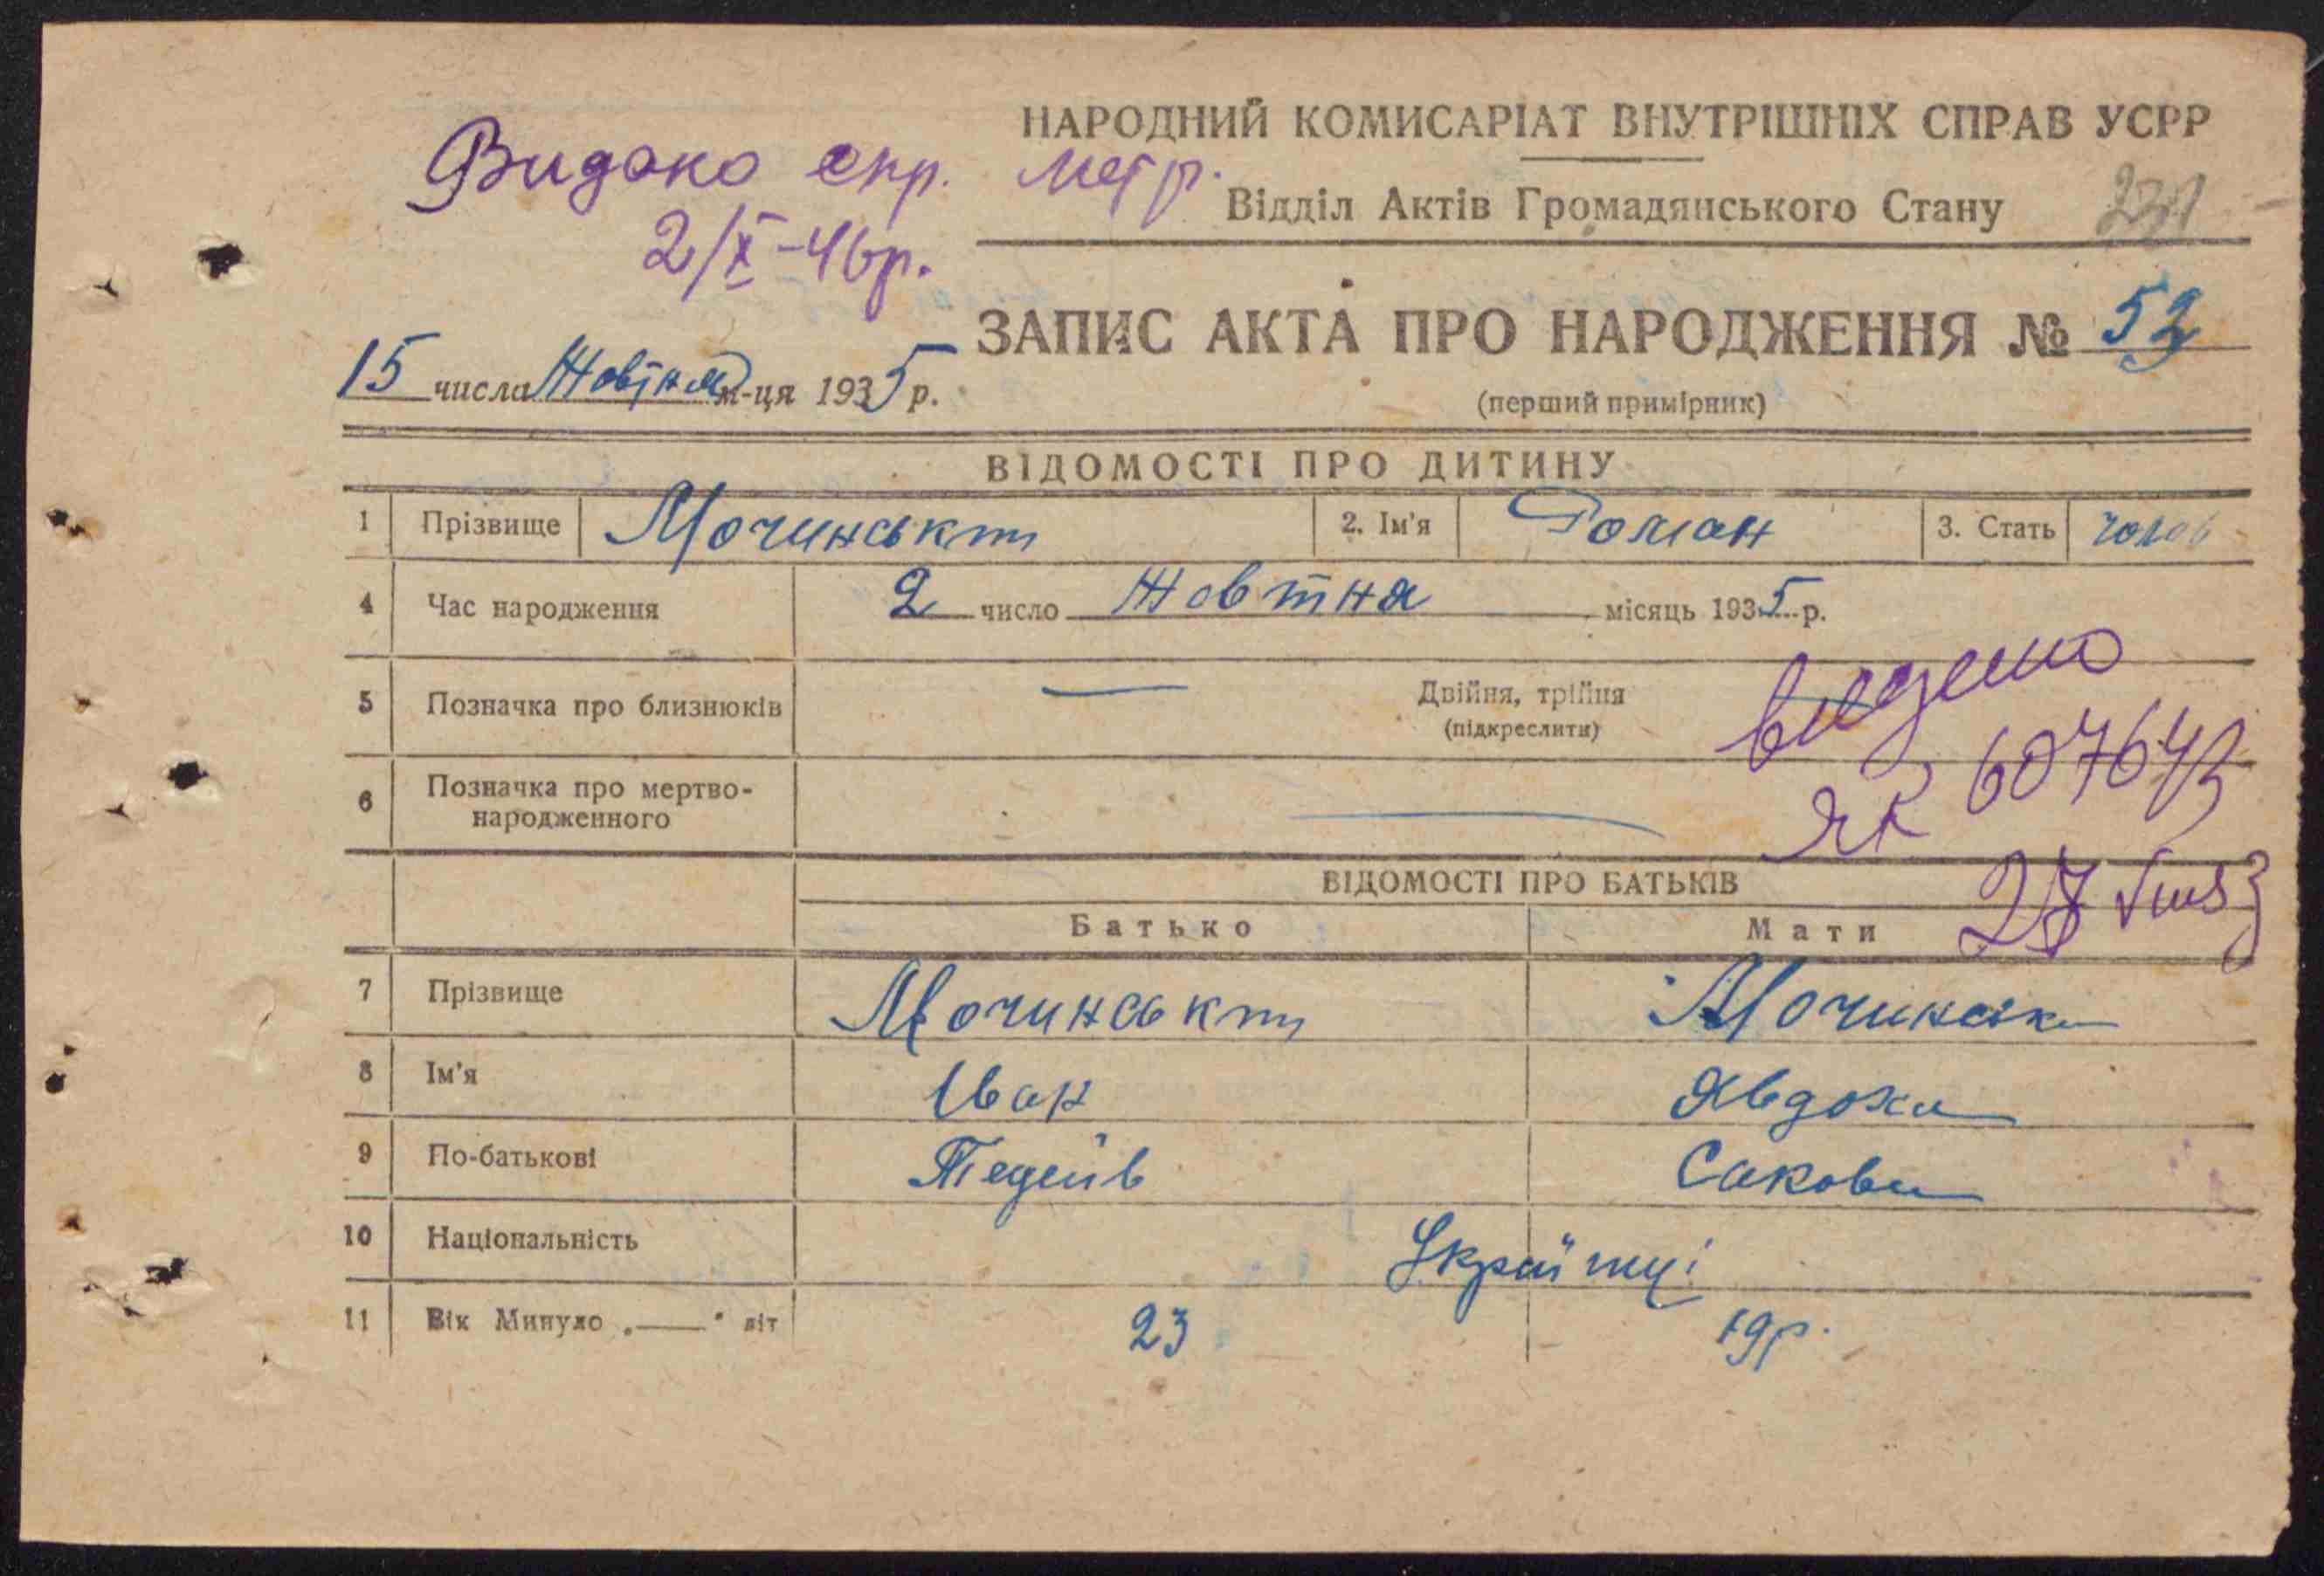 НАРОДНИЙ КОМИСАРІАТ ВНУТРІШНІХ СПРАВ УСРР
Видано спр. метр.
Відділ Актів Громадянського Стану
2/X-46р.
ЗАПИС АКТА ПРО НАРОДЖЕННЯ № 52
15 числа Жовтня м-ця 1935 р.
(перший примірник)
ВІДОМОСТІ ПРО ДИТИНУ
1 Прізвище Мочинський 2. Ім'я Роман 3. Стать чолов
4 Час народження 2 число Жовтня місяць 1935 р.
5 Позначка про близнюків — Двійня, трійня
(підкреслити)
видано
6 Позначка про мертво-
народженного —
ЯК 607643
ВІДОМОСТІ ПРО БАТЬКІВ
Батько Мати
7 Прізвище Мочинський Мочинська
8 Ім'я Іван Явдоха
9 По-батькові Сакова
10 Національність Українці
11 Вік Минуло „—" літ 23 19р.